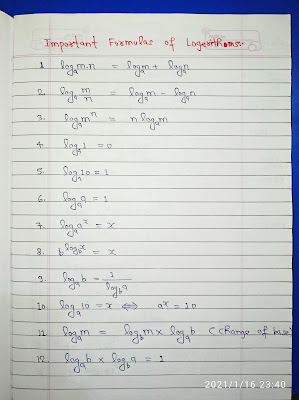 Important Formulas of Logarithms:-
1. logₐm.n = logₐm + logₐn
2. logₐ m/n = logₐm - logₐn
3. logₐmⁿ = n logₐm
4. logₐ1 = 0
5. logₐ10 = 1
6. logₐa = 1
7. logₐaˣ = x
8. b^(log_b x) = x
9. logₐb = 1/log_b a
10. logₐ10 = x ⇔ aˣ = 10
11. logₐm = log_b m × logₐb (change of base)
12. logₐb × log_b a = 1
2021/1/16 23:40